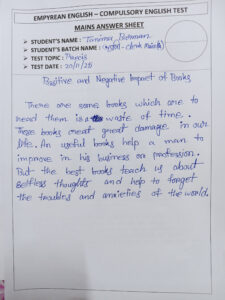 EMPYREAN ENGLISH – COMPULSORY ENGLISH TEST
MAINS ANSWER SHEET
➢ STUDENT'S NAME : Barman
➢ STUDENT'S BATCH NAME :
➢ TEST TOPIC : Precis
➢ TEST DATE : 20/11/25
Positive and Negative Impact of Books
There are some books which are to
read them is a waste of time.
These books creat great damage in our
life. An useful books help a man to
improve in his business or profession.
But the best books teach us about
selfless thoughts and help to forget
the troubles and anxieties of the world.